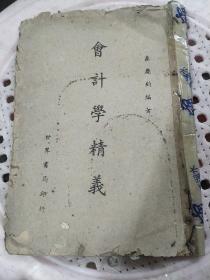 會計學精義
世界書局印行